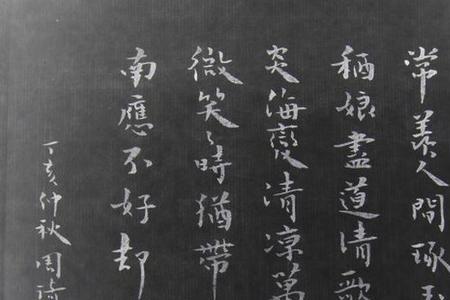 常羨人間琢玉
酥娘盡道清歌
炎海變清凉萬
微笑々時猶帶
南應不好却
丁亥仲秋周